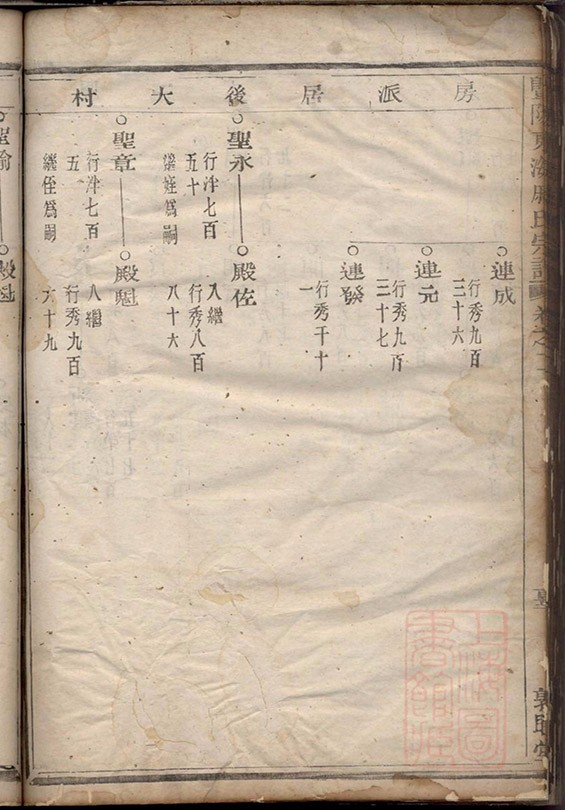 房派居後大村
連成
行秀九百
三十六
連元
行秀九百
三十七
連發
行秀千十
一
聖永
行泮七百
五十
繼姪爲嗣
殿佐
入繼
行秀八百
八十六
聖章
行泮七百
五
繼侄爲嗣
殿魁
入繼
行秀九百
六十九
聖
殿魁
東海
氏宗譜卷之二
敦睦堂
上海圖書館藏